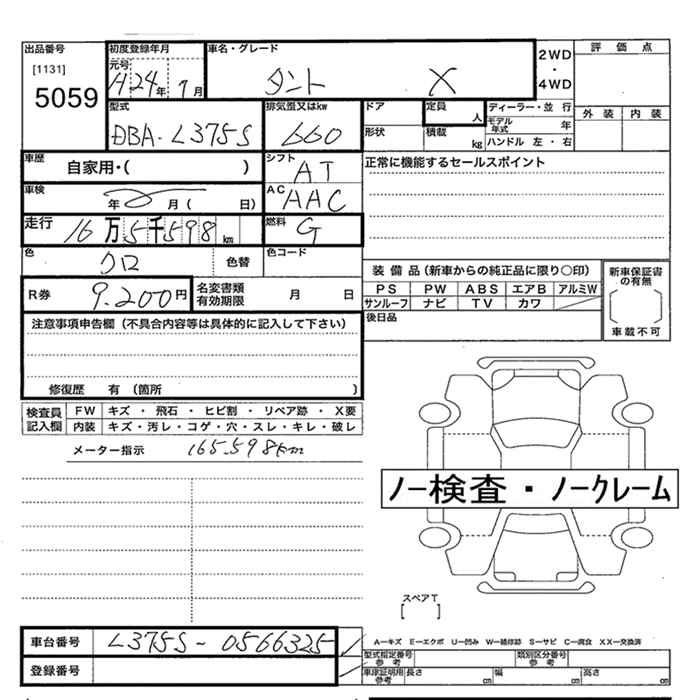 出品番号
[1131]
5059
初度登録年月
元号
H 24年 7月
車名・グレード
タント X
2WD
・
4WD
評価点
外装 内装
型式
DBA-L375S
排気量又はkw
660
ドア
形状
定員
人
積載
kg
ディーラー・並行
モデル年式 年
ハンドル 左・右
車歴
自家用・( )
シフト
AT
正常に機能するセールスポイント
車検
年 月 ( 日)
AC
AAC
走行
16万5千598km
燃料
G
色
クロ
色替
色コード
Ｒ券
9.200円
名変書類
有効期限
月 日
装備品(新車からの純正品に限り○印)
PS PW ABS エアB アルミW
サンルーフ ナビ TV カワ
新車保証書
の有無
車載不可
後日品
注意事項申告欄(不具合内容等は具体的に記入して下さい)
修復歴 有 (箇所 )
検査員
記入欄
FW キズ ・ 飛石 ・ ヒビ割 ・ リペア跡 ・ X要
内装 キズ・汚レ・コゲ・穴・スレ・キレ・破レ
メーター指示 165.598km
ノー検査・ノークレーム
スペアT
[ ]
車台番号 L375S-0566325
登録番号
A―キズ E―エクボ U―凹み W―補修跡 S―サビ C―腐食 XX―交換済
型式指定番号
参考
類別区分番号
参考
車庫証明用
参考
長さ cm 幅 cm 高さ cm